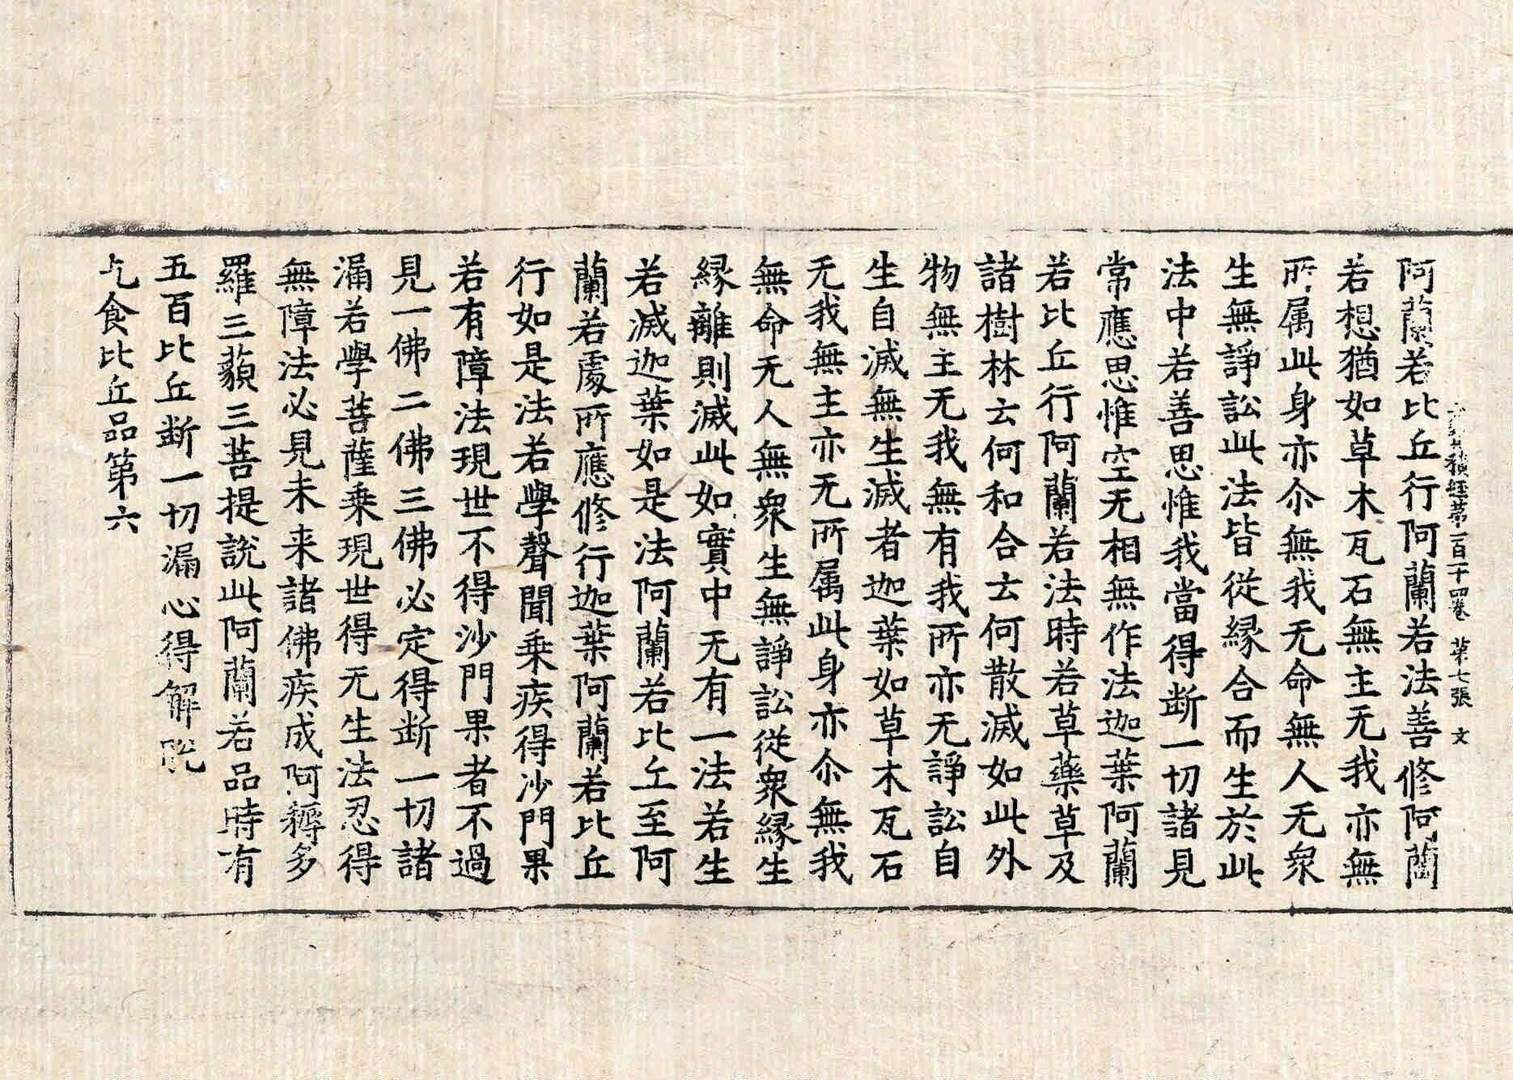 大寶積經第一百一十四卷 第七張 文
阿蘭若比丘行阿蘭若法善修阿蘭
若想猶如草木瓦石無主无我亦無
所属此身亦尒無我无命無人无衆
生無諍訟此法皆從縁合而生於此
法中若善思惟我當得断一切諸見
常應思惟空无相無作法迦葉阿蘭
若比丘行阿蘭若法時若草藥草及
諸樹林云何和合云何散滅如此外
物無主无我無有我所亦无諍訟自
生自滅無生滅者迦葉如草木瓦石
无我無主亦无所属此身亦尒無我
無命无人無衆生無諍訟從衆縁生
縁離則滅此如實中无有一法若生
若滅迦葉如是法阿蘭若比丘至阿
蘭若處所應修行迦葉阿蘭若比丘
行如是法若學聲聞乗疾得沙門果
若有障法現世不得沙門果者不過
見一佛二佛三佛必定得断一切諸
漏若學菩薩乗現世得无生法忍得
無障法必見未来諸佛疾成阿耨多
羅三藐三菩提說此阿蘭若品時有
五百比丘断一切漏心得解脫
乞食比丘品第六